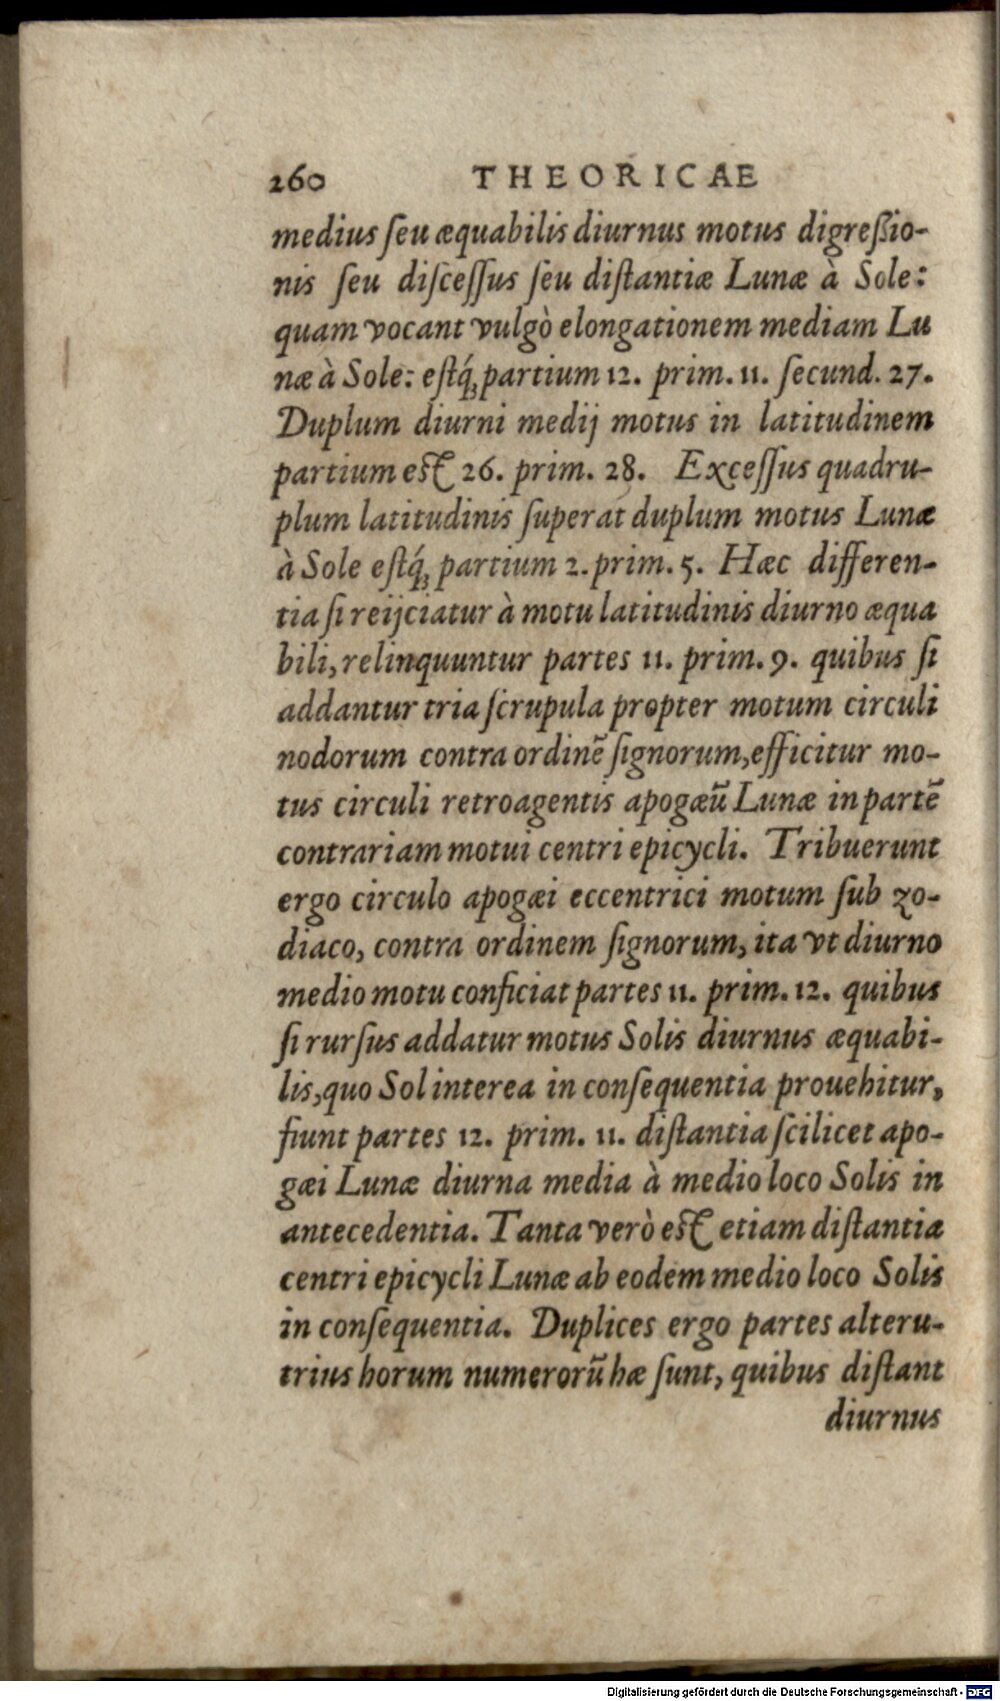 260 THEORICAE
medius ſeu æquabilis diurnus motus digreßio-
nis ſeu diſceſſus ſeu diſtantiæ Lunæ à Sole:
quam vocant vulgò elongationem mediam Lu
næ à Sole: eſtq́ꝫ partium 12. prim. 11. ſecund. 27.
Duplum diurni medij motus in latitudinem
partium eſt 26. prim. 28. Exceſſus quadru-
plum latitudinis ſuperat duplum motus Lunæ
à Sole eſtq́ꝫ partium 2. prim. 5. Hæc differen-
tia ſi reijciatur à motu latitudinis diurno æqua
bili, relinquuntur partes 11. prim. 9. quibus ſi
addantur tria ſcrupula propter motum circuli
nodorum contra ordinē ſignorum, efficitur mo-
tus circuli retroagentis apogæū Lunæ in partē
contrariam motui centri epicycli. Tribuerunt
ergo circulo apogæi eccentrici motum ſub zo-
diaco, contra ordinem ſignorum, ita vt diurno
medio motu conficiat partes 11. prim. 12. quibus
ſi rurſus addatur motus Solis diurnus æquabi-
lis, quo Sol interea in conſequentia prouehitur,
fiunt partes 12. prim. 11. diſtantia ſcilicet apo-
gæi Lunæ diurna media à medio loco Solis in
antecedentia. Tanta verò eſt etiam diſtantia
centri epicycli Lunæ ab eodem medio loco Solis
in conſequentia. Duplices ergo partes alteru-
trius horum numerorū hæ ſunt, quibus diſtant
diurnus
Digitalisierung gefördert durch die Deutsche Forschungsgemeinschaft - DFG